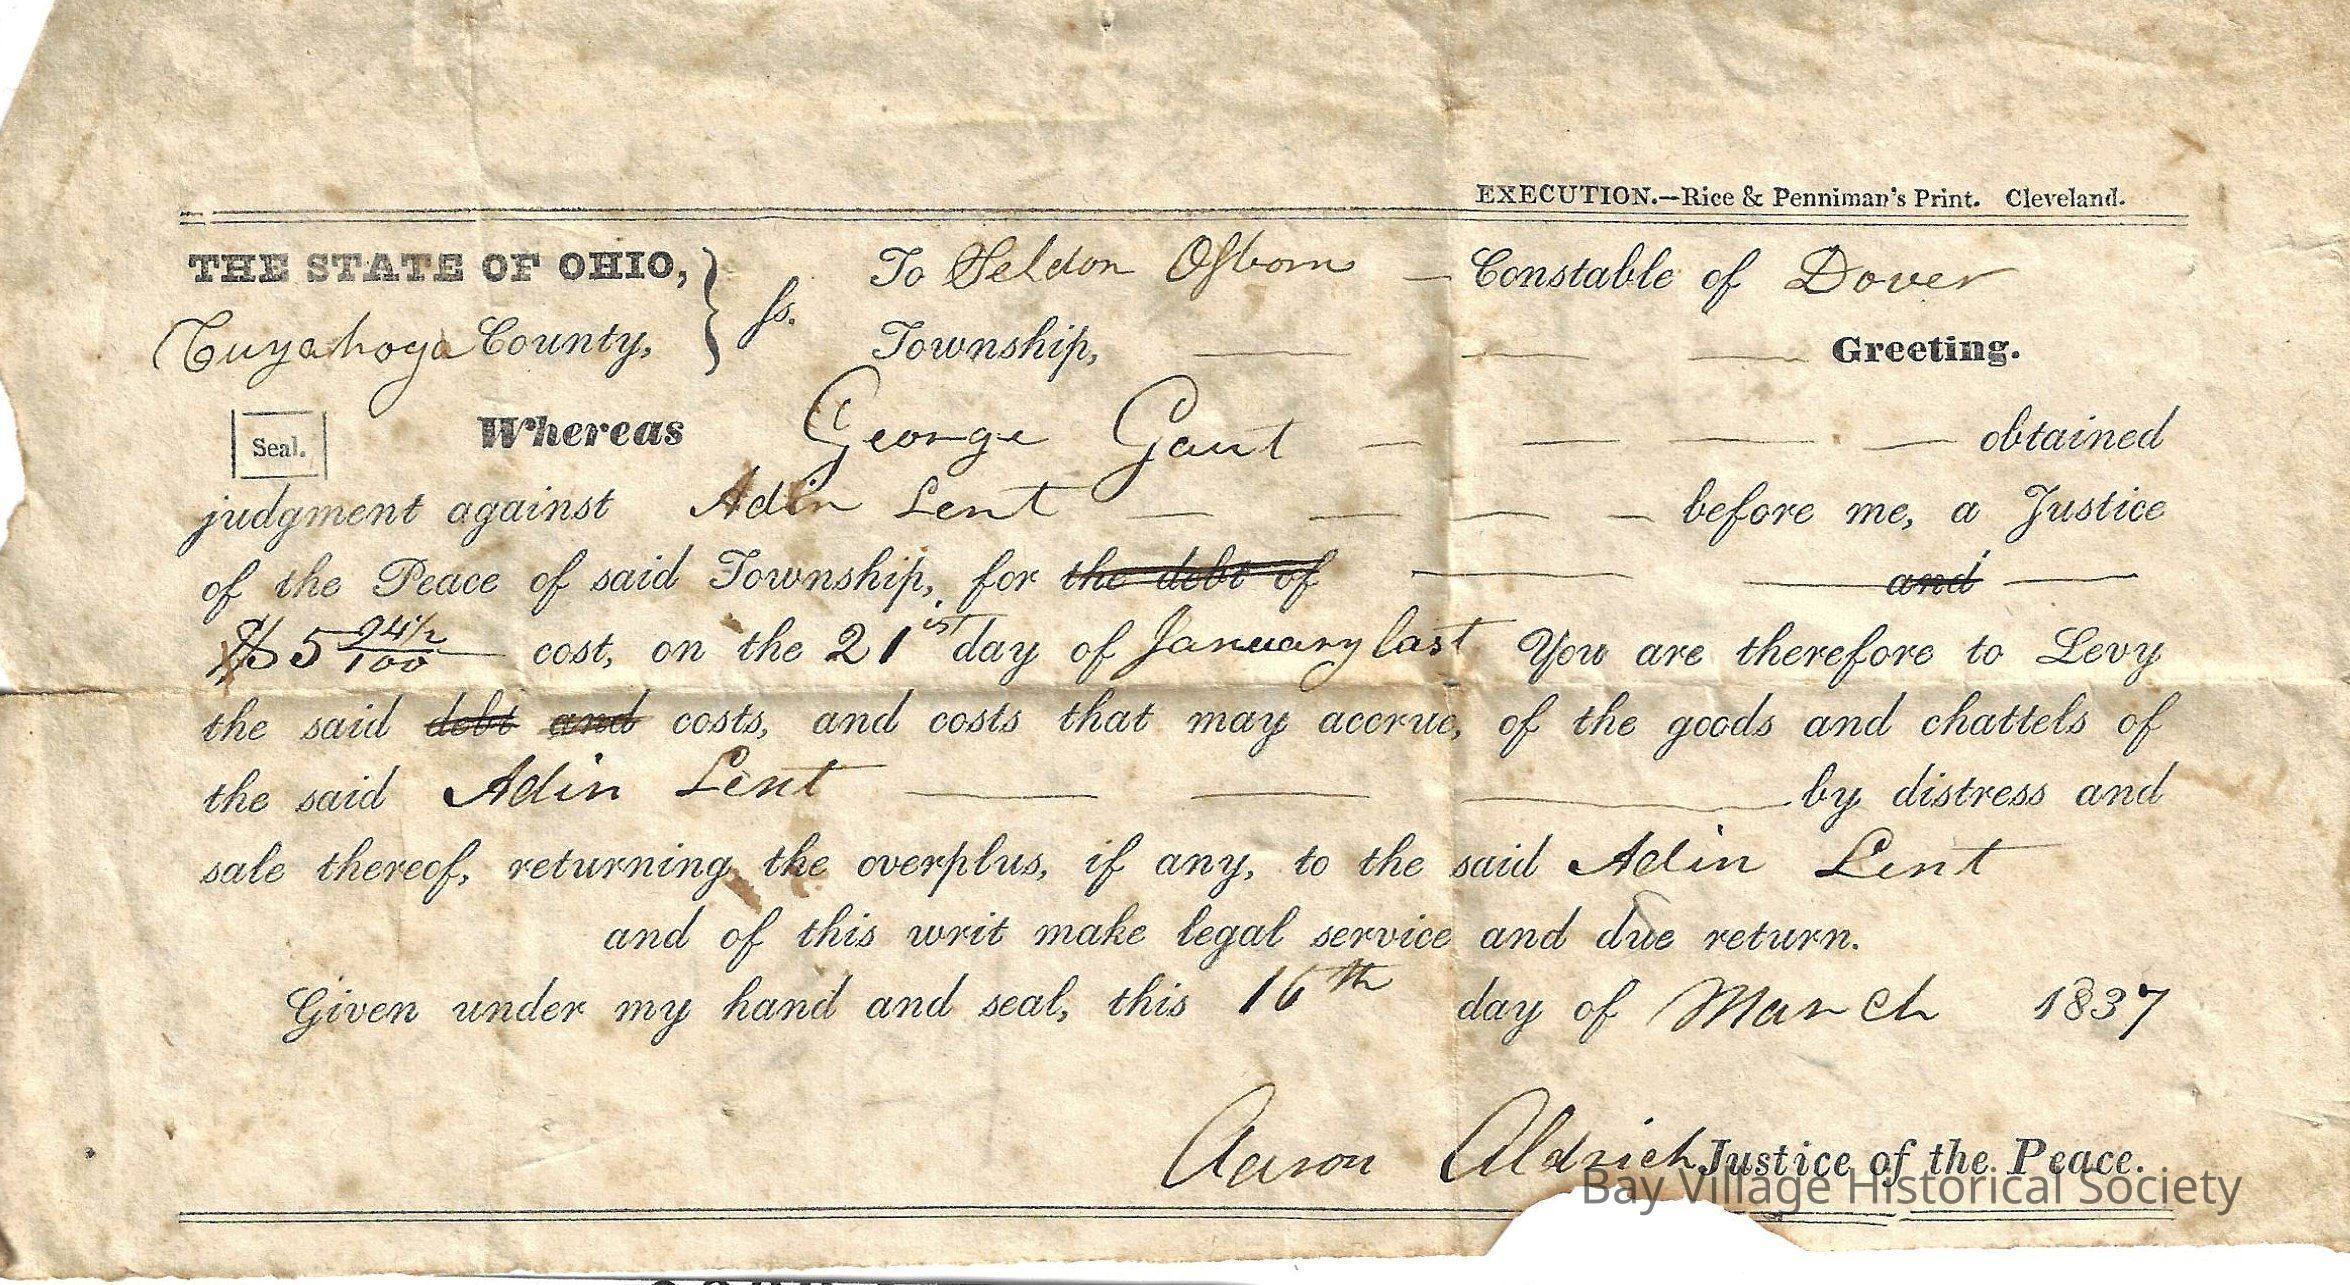 EXECUTION.—Rice & Penniman's Print. Cleveland.
THE STATE OF OHIO, } ss. To Seldon Osborn — Constable of Dover
Cuyahoga County, Township, — — — Greeting.
Seal. Whereas George Gaut — — — — obtained
judgment against Adin Lent — — — — before me, a Justice
of the Peace of said Township, for the debt of — — and —
$5 94½/100 — cost, on the 21st day of January last You are therefore to Levy
the said debt and costs, and costs that may accrue, of the goods and chattels of
the said Adin Lent — — — by distress and
sale thereof, returning the overplus, if any, to the said Adin Lent
and of this writ make legal service and due return.
Given under my hand and seal, this 16th day of March 1837
Aaron Aldrich Justice of the Peace.
Bay Village Historical Society